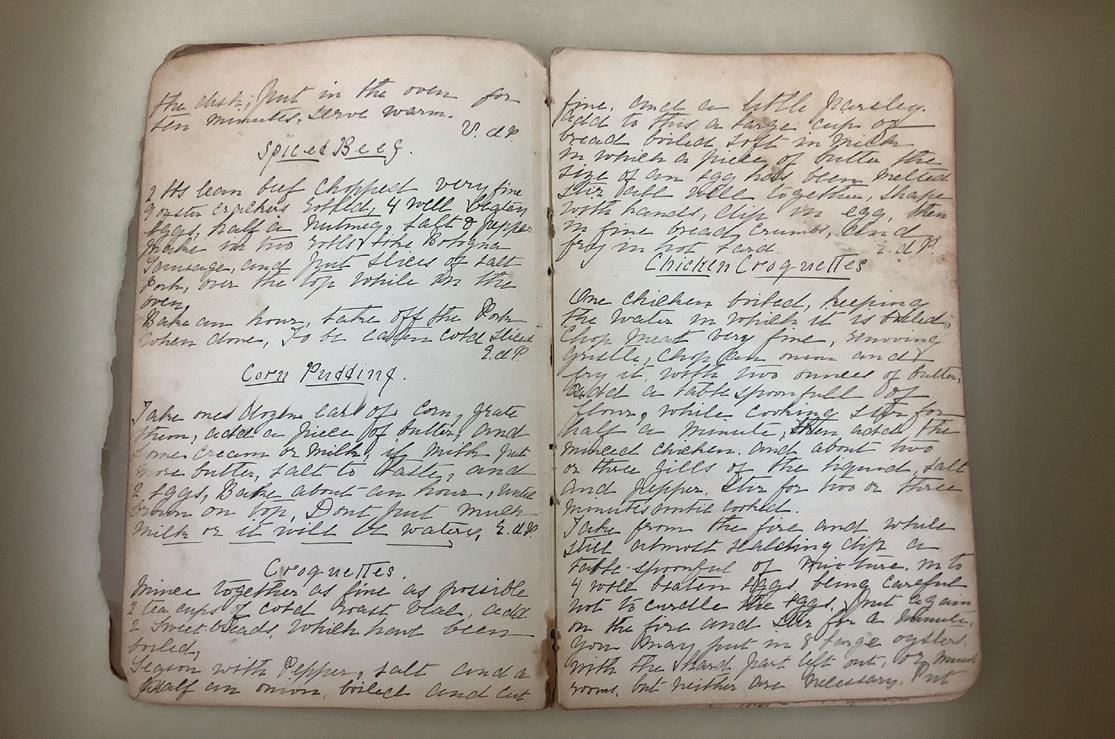 the dish, put in the oven for
ten minutes, serve warm.
V. d P.
Spiced Beef.
2 lbs lean beef chopped very fine
crackers rolled, 4 well beaten
Eggs, half a Nutmeg, salt & pepper
Make in two rolls like Bologna
Sausage, and put slices of salt
Pork, over the top while in the
oven,
Bake an hour, take off the Pork
when done, To be eaten cold sliced
E. d P.
Corn Pudding.
Take one dozen ears of corn, grate
them, add a piece of butter, and
some cream or milk, if milk put
more butter, salt to taste, and
2 Eggs, Bake about an hour, until
brown on top, Dont put much
milk or it will be watery, E. d P.
Croquettes.
Mince together as fine as possible
2 tea cups of cold roast veal, add
2 Sweet-breads, which have been
boiled,
Season with Pepper, salt and a
half an onion, boiled and cut
fine, and a little Parsley.
Add to this a large cup of
bread boiled soft in milk
in which a piece of butter the
size of an egg has been melted
Stir all well together, shape
with hands, dip in egg, then
in fine bread crumbs, and
fry in hot lard. E. d P.
Chicken Croquettes
One chicken boiled, keeping
the water in which it is boiled,
Chop meat very fine, removing
gristle, chop an onion and
fry it, with two ounces of butter,
Add a tablespoonfull of
flour, while cooking stir for
half a minute, then add the
minced chicken. and about two
or three gills of the liquid, salt
and pepper. Stir for two or three
minutes until cooked.
Take from the fire and while
still almost scalding dip a
table-spoonful of mixture into
4 well beaten Eggs, being careful
not to curdle the eggs. Put again
on the fire and stir for a minute,
You may put in 8 large oysters.
with the hard part left out, or mush
rooms, but neither are necessary. Put